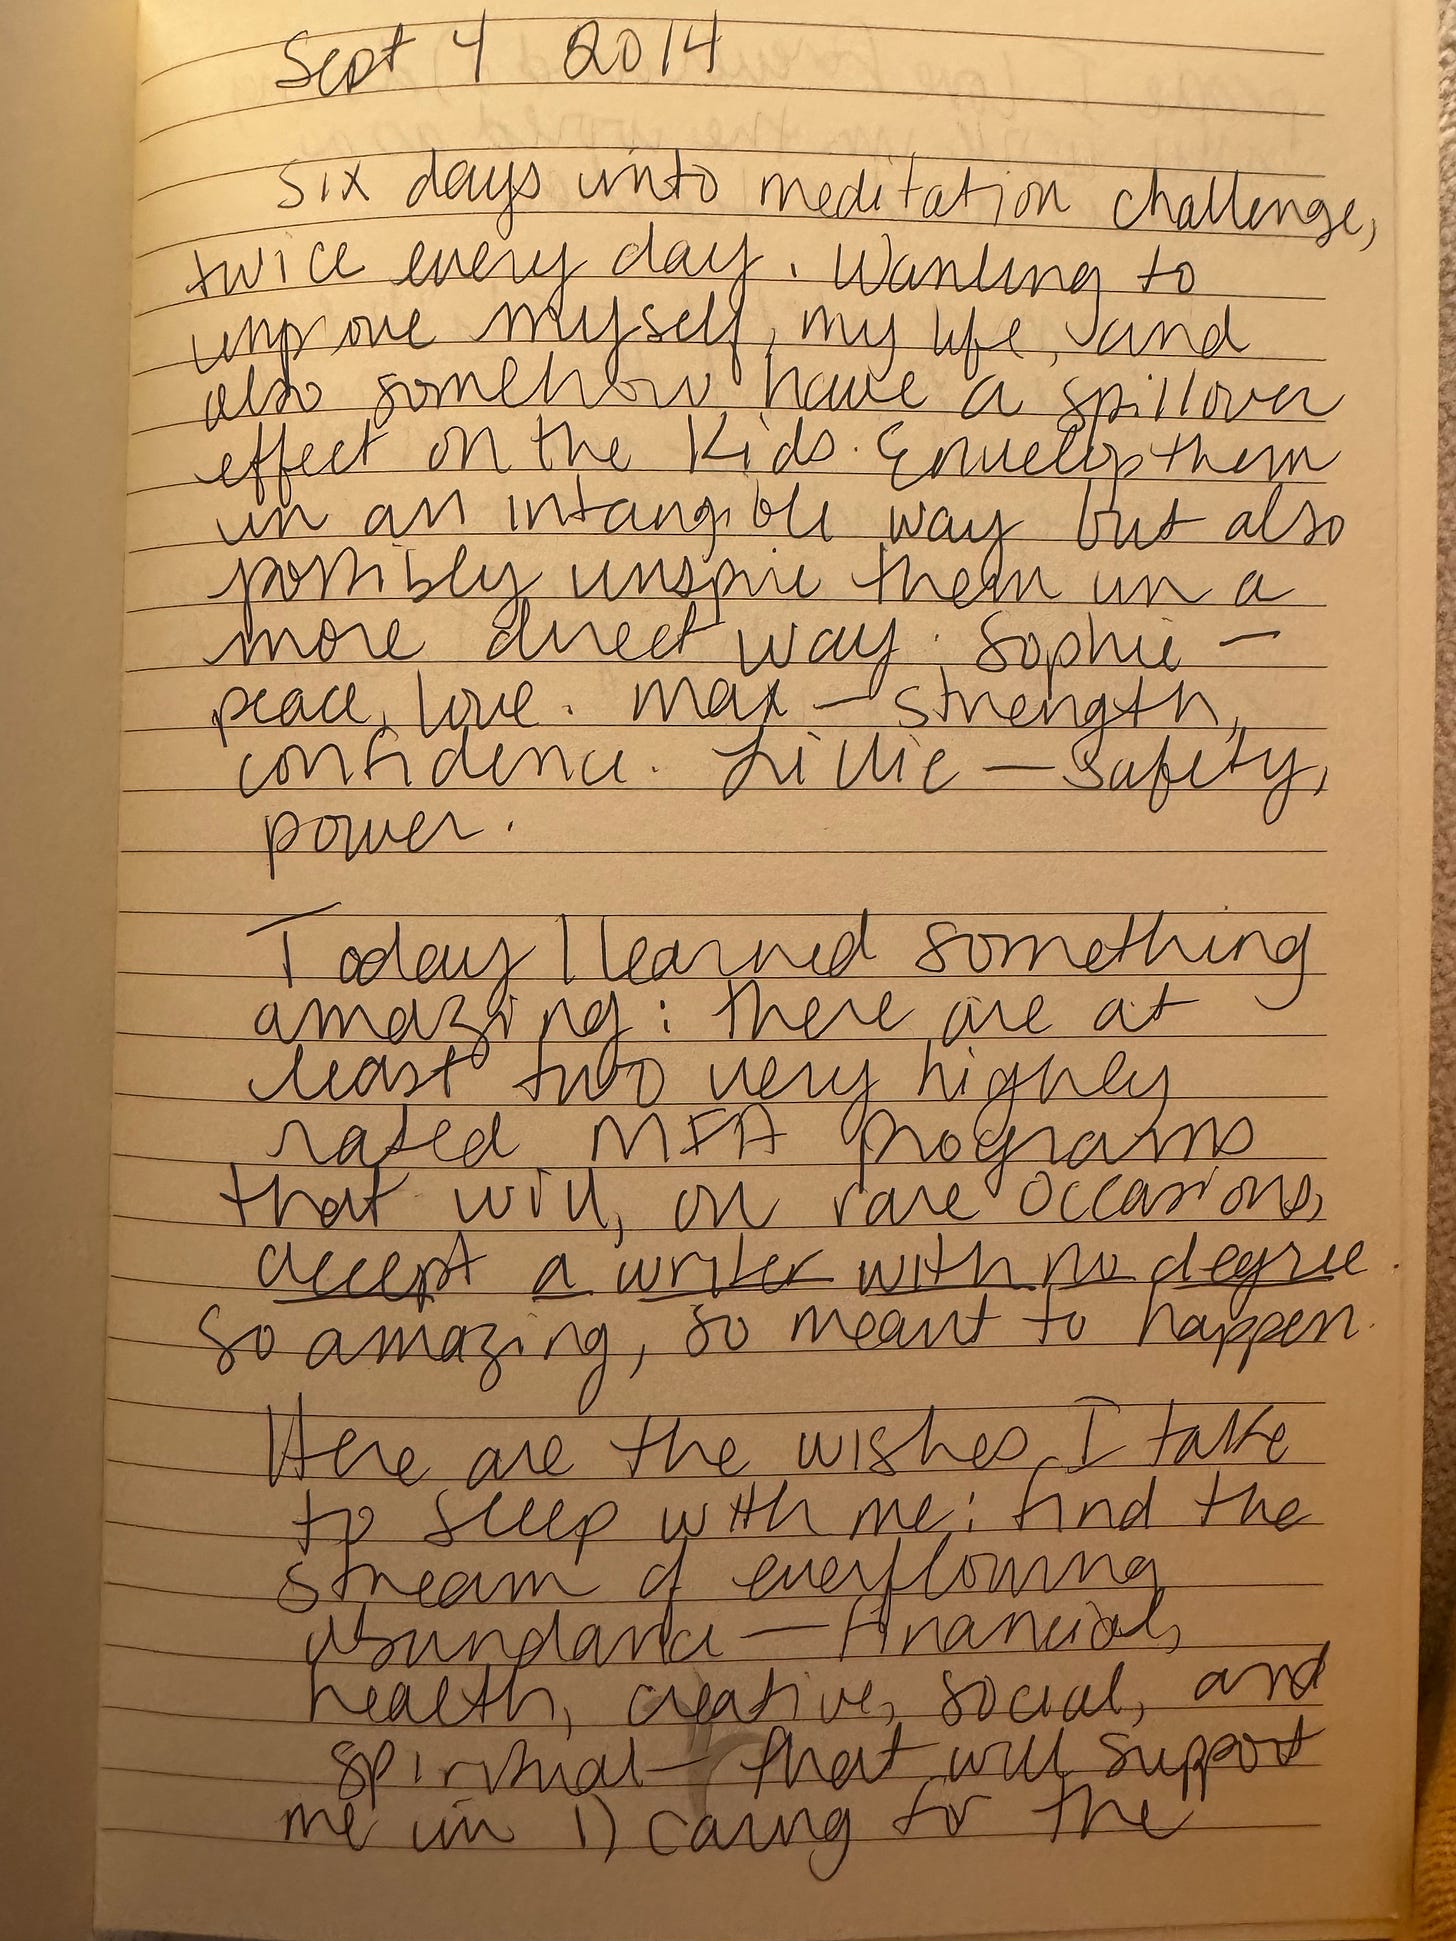 Sept 4 2014
Six days into meditation challenge,
twice every day. Wanting to
improve myself, my life, and
also somehow have a spillover
effect on the kids. Envelop them
in an intangible way but also
possibly inspire them in a
more direct way. Sophie —
peace, love. Max — strength,
confidence. Lillie — Safety,
power.
Today I learned something
amazing: there are at
least two very highly
rated MFA programs
that will, on rare occasions,
accept a writer with no degree.
So amazing, so meant to happen.
Here are the wishes I take
to sleep with me: find the
stream of everflowing
abundance — financial,
health, creative, social, and
spiritual — that will support
me in 1) caring for the